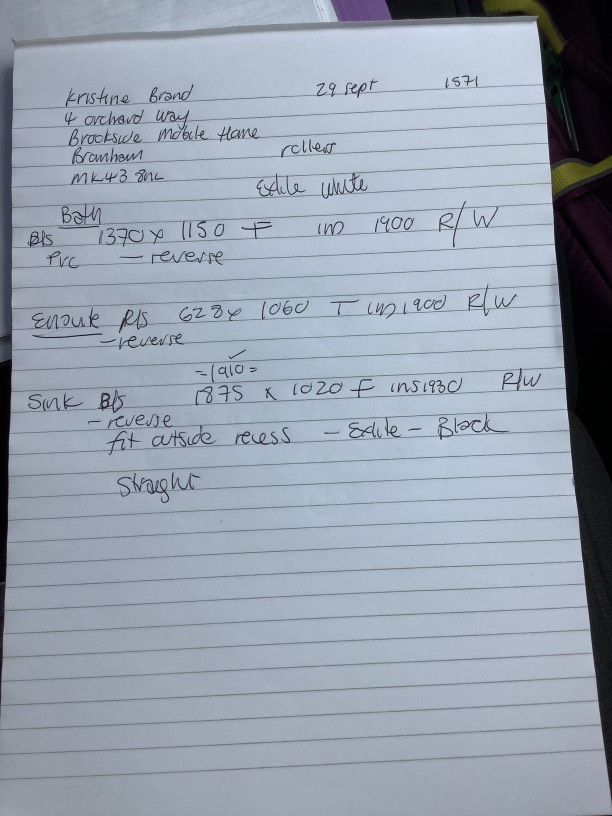 Kristine Brand 29 Sept 1571
4 orchard way
Brookside mobile Hame
Bramham rollers
MK43
Exlite white
Bath
B/s 1370 x 1150 F ins 1900 R/W
PVC - reverse
Ensuite R/s 628 x 1060 T ins 1900 R/W
- reverse
=1910= ✓
Sink B/s 1875 x 1020 F ins 1930 R/W
- reverse
fit outside recess - Exlite - Black
Straight